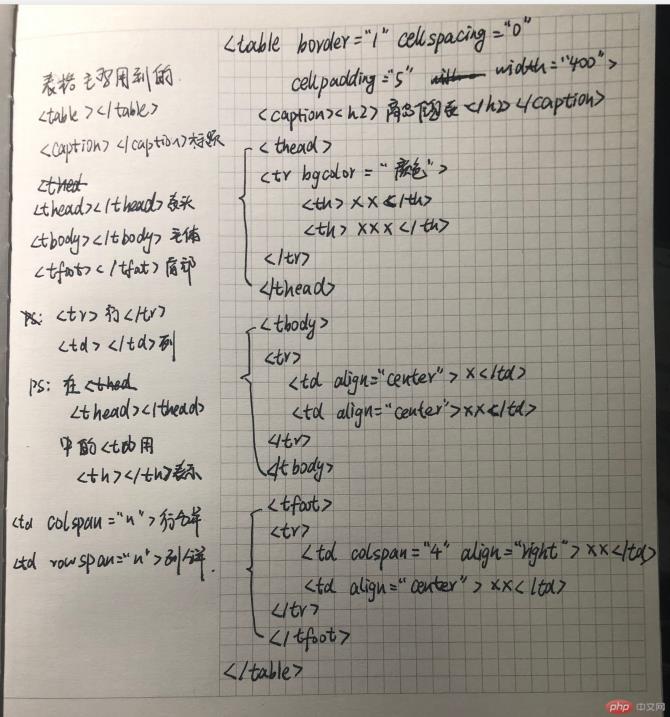 表格主要用到的
<table></table>
<caption></caption>标题
<thed
<thead></thead>表头
<tbody></tbody>主体
<tfoot></tfoot>底部
PS: <tr>行</tr>
<td></td>列
PS: 在<thed
<thead></thead>
中的<td>用
<th></th>表示
<td colspan="n">行合并
<td rowspan="n">列合并
<table border="1" cellspacing="0"
cellpadding="5" width="400">
<caption><h2></h2></caption>
<thead>
<tr bgcolor="颜色">
<th>xx</th>
<th>xxx</th>
</tr>
</thead>
<tbody>
<tr>
<td align="center">x</td>
<td align="center">xx</td>
</tr>
</tbody>
<tfoot>
<tr>
<td colspan="4" align="right">xx</td>
<td align="center">xx</td>
</tr>
</tfoot>
</table>
php 中文网